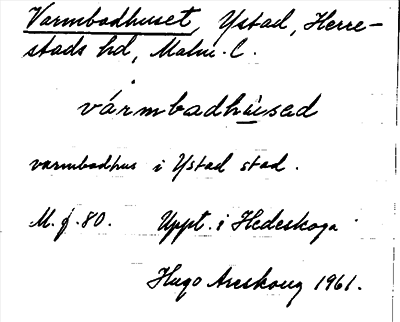 Varmbadhuset, Ystad, Herre-
stads hd, Malm. l.
vármbadhùsad
varmbadhus i Ystad stad.
M. f. 80. Uppt. i Hedeskoga
Hugo Areskoug 1961.